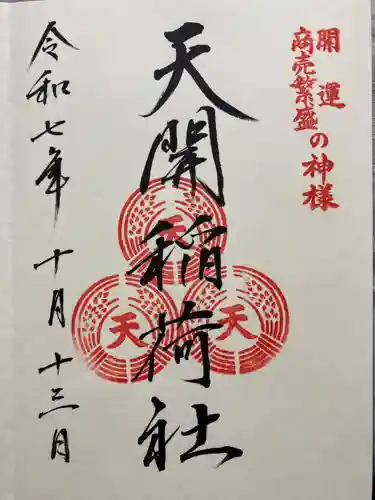 開運
商売繁盛
の神様
天開稲荷社
天
天
天
令和七年十月十三日